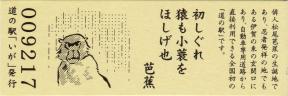 俳人松尾芭蕉の生誕地で
あり、忍者発祥の地でも
ある伊賀の東の玄関口で
あり、自動車専用道路から
直接利用できる全国初の
「道の駅」です。
初しぐれ
猿も小蓑を
ほしげ也
芭蕉
道の駅「いが」発行
009217